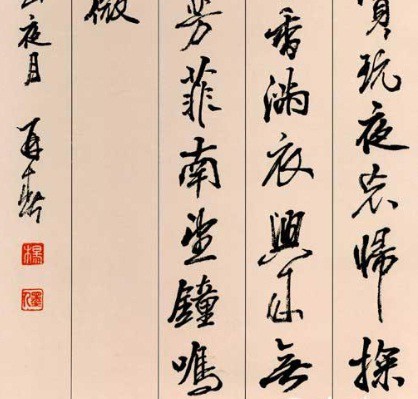 賞玩夜忘歸掬
香滿衣興來無
芳菲南望鐘鳴
微
山夜月